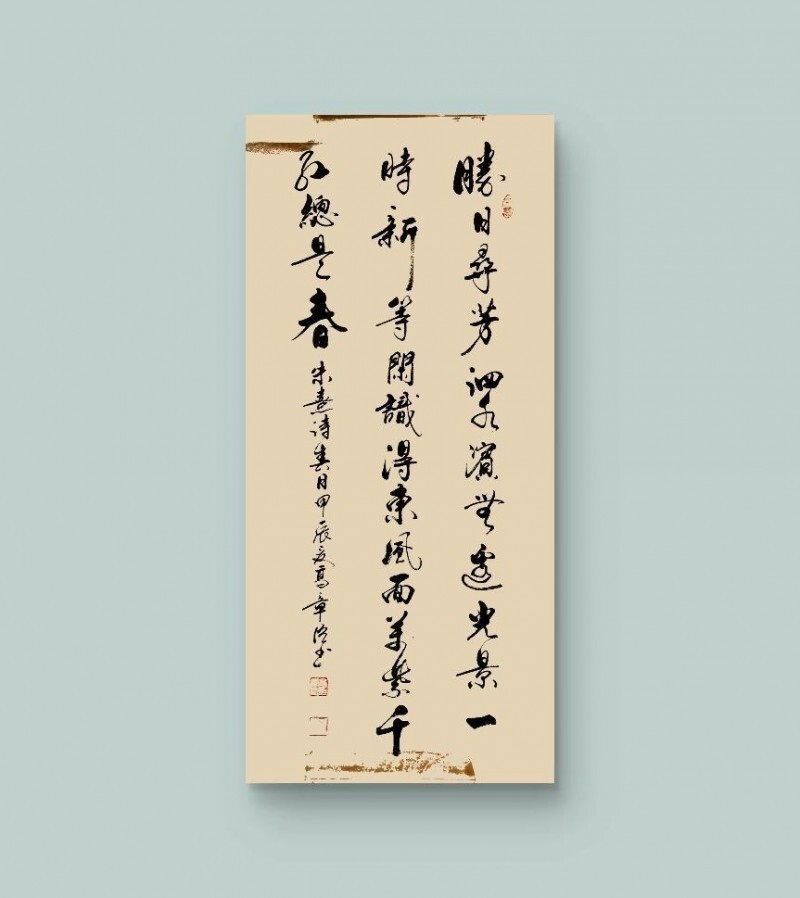 勝日尋芳泗水濱無邊光景一
時新等閑識得東風面萬紫千
紅總是春
朱熹詩春日甲辰夏寫章